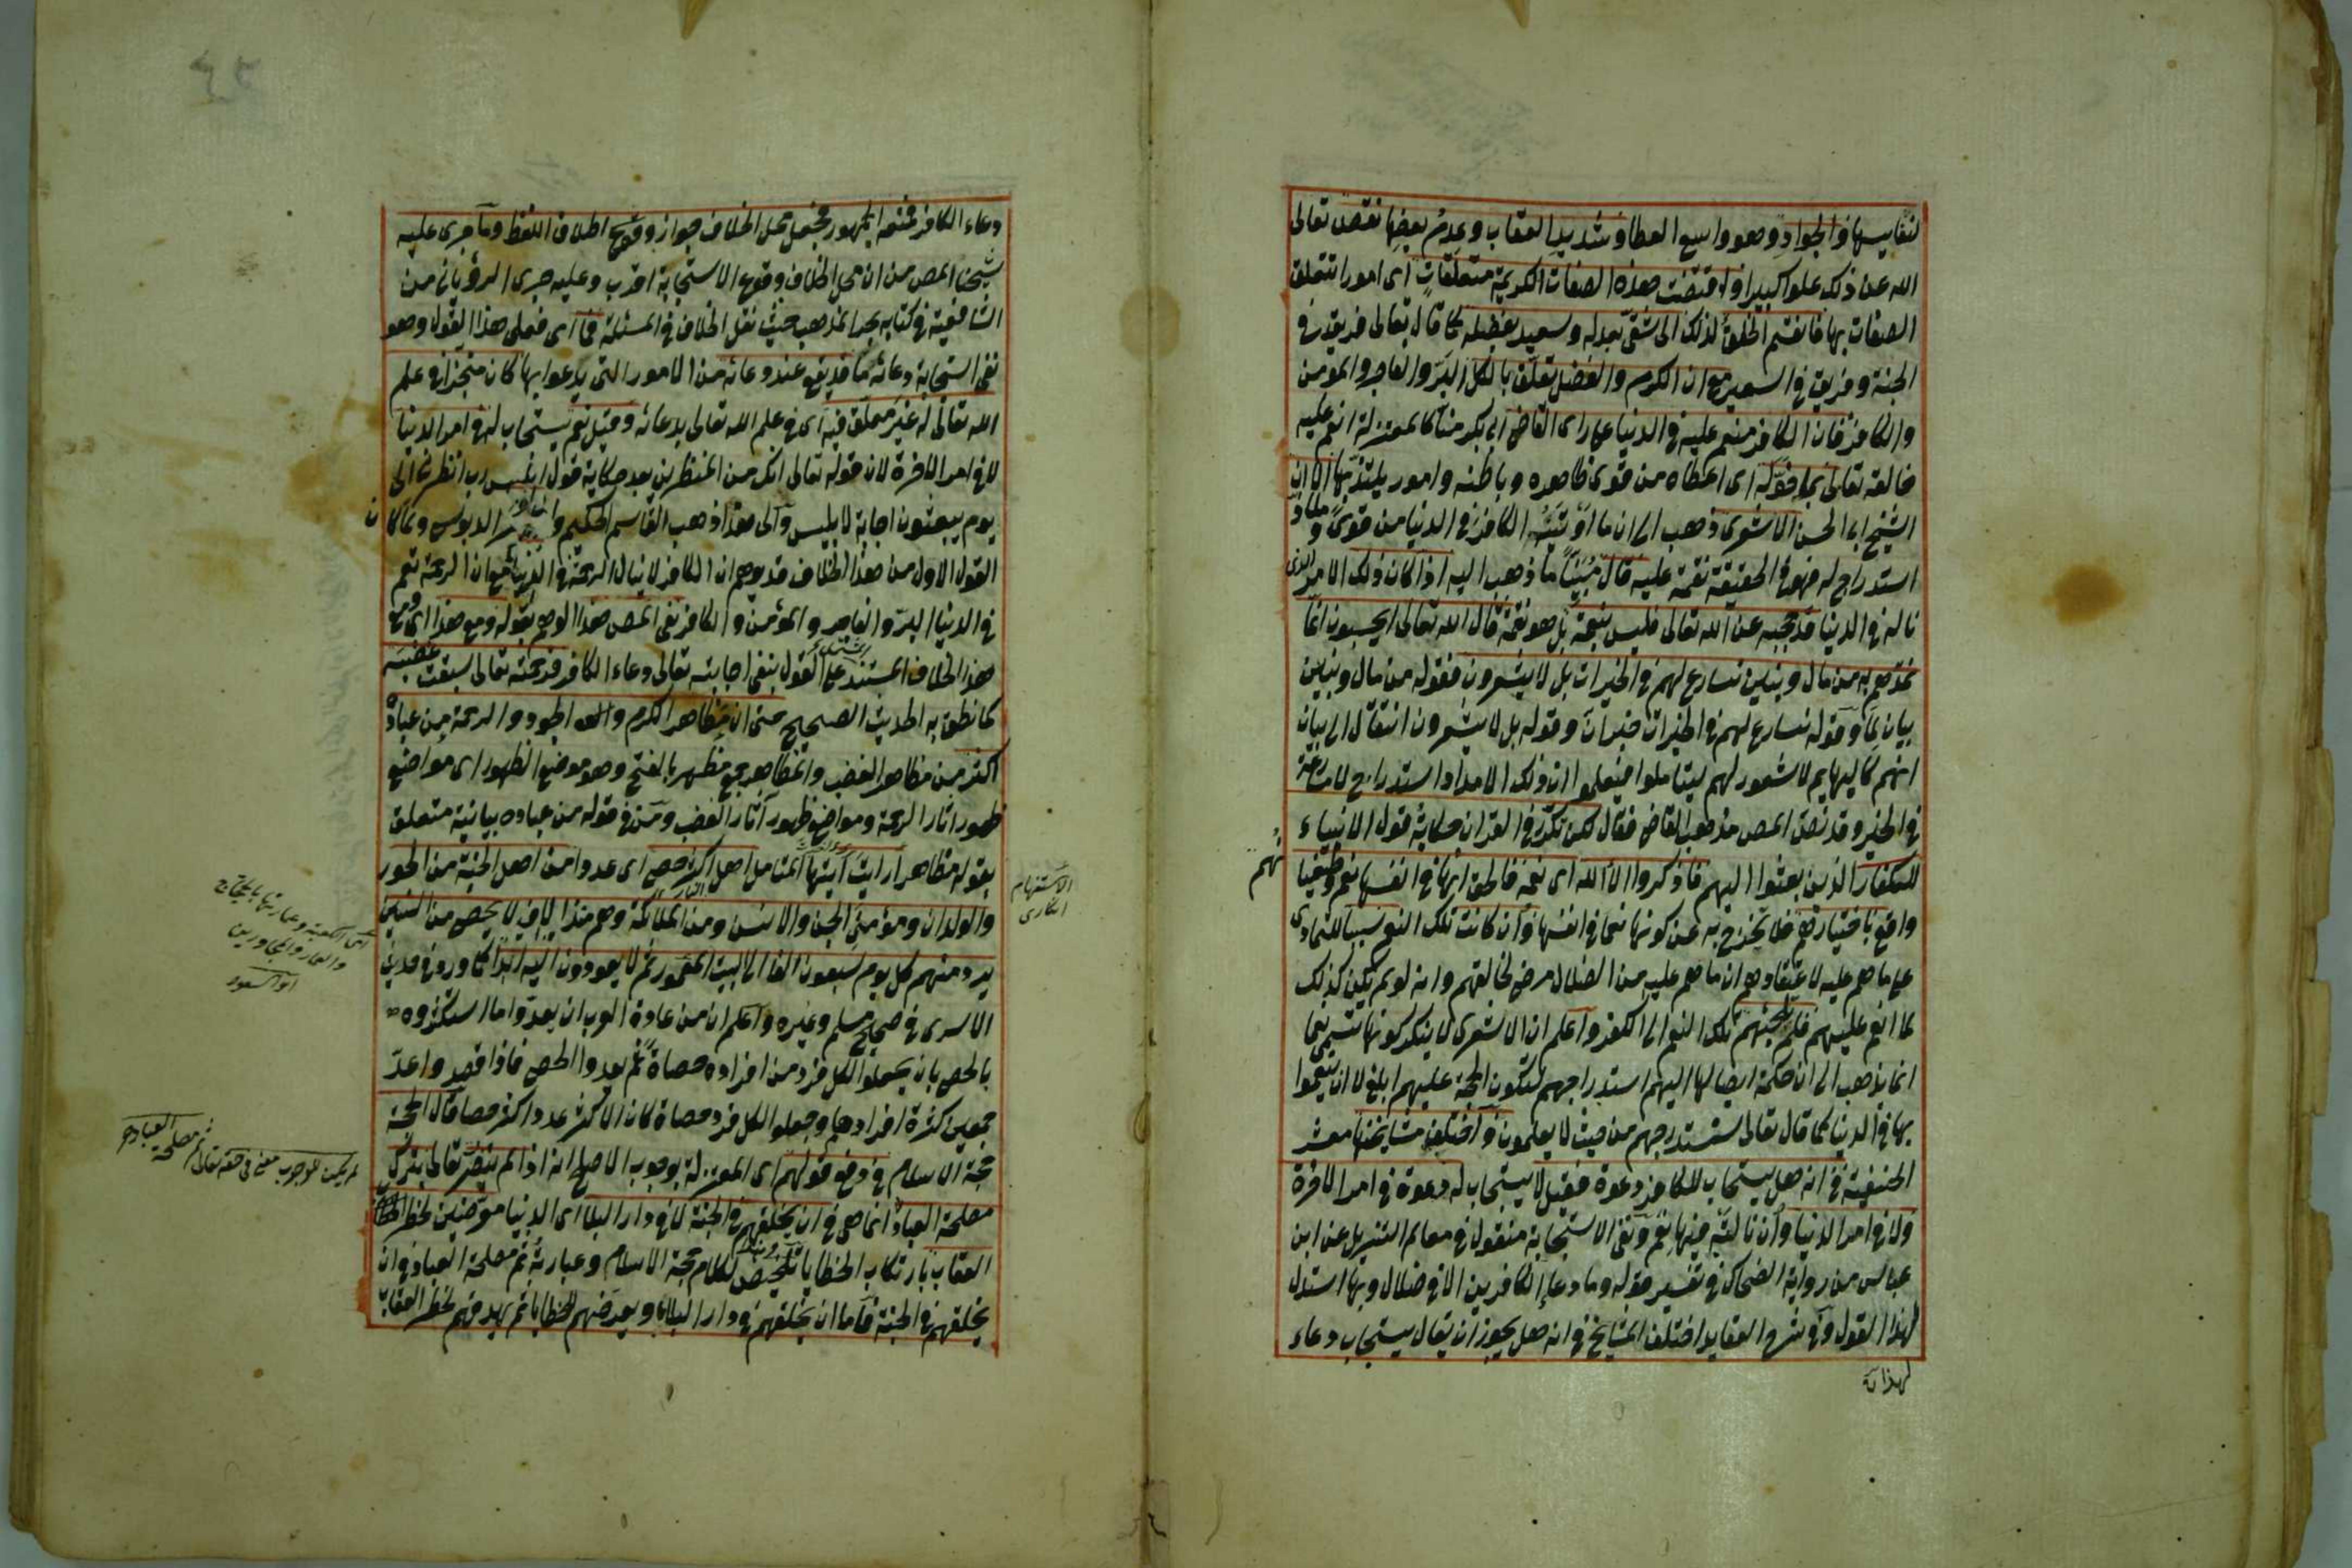 لنفايسها والجواد وهو واسع العطا وشديد العقاب وعدم بعضها نقص تعالى
الله عن ذلك علوا كبيرا واقتضت هذه الصفات الكريمة متعلقات اى امورا تتعلق
الصفات بها فانقسم الخلق لذلك الى شقى بعدله وسعيد بفضله كما قال تعالى فريق فى
الجنة وفريق فى السعير مع ان الكرم والفضل تعلق بالكل البر والفاجر والمومن
والكافر فان الكافر منعم عليه فى الدنيا على راى القاضى ابى بكر منا كالمعتزلة انعم عليه
خالقه تعالى بما خوله اى اعطاه من قوى ظاهره وباطنه وامور يلتذ بها الا ان
الشيخ ابا الحسن الاشعرى ذهب الى ان ما اوتيه الكافر فى الدنيا من قوى و ملاذ
استدراج له فهو فى الحقيقة نقمة عليه قال مبينا ما ذهب اليه اذا كان ذلك الامر الذى
ناله فى الدنيا قد حجبه عن الله تعالى فليس بنعمة بل هو نقمة قال الله تعالى ايحسبون انما
نمدهم به من مال وبنين نسارع لهم فى الخيرات بل لا يشعرون فقوله من مال وبنين
بيان لما وقوله نسارع لهم فى الخيرات خبر ان وقوله بل لا يشعرون انتقال الى بيان
انهم كالبهايم لا شعور لهم ليتاملوا فيعلموا ان ذلك الامداد استدراج لا مسارعة
فى الخير وقد نصر المص مذهب القاضى فقال لكن تكرر فى القران حكاية قول الانبياء
للكفار الذين بعثوا اليهم فاذكروا الآ الله اى نعمه فالحق انها فى انفسها نعم وطغيا نهم
واقع باختيارهم فلا تخرج به عن كونها نعما فى انفسها وان كانت تلك النعم سببا للتمادى
على ما هم عليه لاعتقادهم ان ما هم عليه من الضلال مرض لخالقهم وانه لو لم يكن كذلك
لما انعم عليهم فلم تلجئهم تلك النعم الى الكفر واعلم ان الاشعرى لا ينكر كونها تسمى نعما
انما يذهب الى ان حكمة ايصالها اليهم استدراجهم لتكون الحجة عليهم ابلغ لا ان ينعموا
بها فى الدنيا كما قال تعالى سنستدرجهم من حيث لا يعلمون واختلف مشايخنا معشر
الحنفية فى انه هل يستجاب للكافر دعوة فقيل لا يستجاب له دعوة فى امر الاخرة
ولا فى امر الدنيا وان نالته فيها نعم ونفى الاستجابة منقول فى معالم التنزيل عن ابن
عباس من رواية الضحاك فى تفسير قوله وما دعاء الكافرين الا فى ضلال وبها استدل
لهذا القول وفى شرح العقايد اختلف المشايخ فى انه هل يجوز ان يقال يستجاب دعاء
دعاء الكافر فمنعه الجمهور فجعل محل الخلاف جواز وقوع اطلاق اللفظ وما جرى عليه
شيخنا المص من ان محل الخلاف وقوع الاستجابة اقرب وعليه جرى الرؤيانى من
الشافعية فى كتابه بحر المذهب حيث نقل الخلاف فى المسئلة فما اى فعلى هذا القول وهو
نفى استجابة دعائه ما قد يقع عند دعائه من الامور التى يدعوا بها كان منجزا فى علم
الله تعالى له غير معلق فيه اى فى علم الله تعالى بدعائه وقيل نعم يستجاب له فى امر الدنيا
لا فى امر الاخرة لان قوله تعالى انك من المنظرين بعد حكاية قول ابليس رب انظرنى الى
يوم يبعثون اجابة لابليس والى هذا ذهب القاسم الحكيم وابو نصر الدبوسى ولما كا ن
القول الاول من هذا الخلاف قد يوهم ان الكافر لا ينال الرحمة فى الدنيا مع ان الرحمة تعم
فى الدنيا البر والفاجر والمؤمن والكافر نفى المص هذا الوهم بقوله ومع هذا اى ومع
هذا الخلاف المستند على القول بنفى اجابته تعالى دعاء الكافر فرحمته تعالى سبقت غضبه
كما نطق به الحديث الصحيح حتى ان مظاهر الكرم والعطا والجود والرحمة من عباده
اكثر من مظاهر الغضب والمظاهر جمع مظهر بالفتح وهو موضع الظهور اى مواضع
ظهور اثار الرحمة ومواضع ظهور آثار الغضب ومن فى قوله من عباده بيانية متعلق
بقوله مظاهر ارايت ايتها المتامل اهل النار اكثر حصى اى عددا من اهل الجنة من الحور
والولدان ومؤمنى الجن والانس ومن الملائكة وهم منذ الافى لا يحصى من السنين
يرد منهم كل يوم سبعون الفا الى البيت المعمور ثم لا يعودون اليه ابدا كما ورد فى حديث
الاسرى فى صحيح مسلم وغيره واعلم ان من عادة العرب ان يعدوا ما استكثروه
بالحصى بان يجعلوا لكل فرد من افراده حصاة ثم يعدوا الحصى فاذا قصد واعد
جمعين كثرة افرادهما وجعلوا لكل فرد حصاة كان الاكثر عددا اكثر حصا قال الحجة
حجة الاسلام فى دفع قولهم اى المعتزلة بوجوب الاصلح انه اذا لم يتضرر تعالى بترك
مصلحة العباد انما هى فى ان يخلقهم فى الجنة لا فى دار البلا اى الدنيا معرضين لخطر
العقاب بارتكاب الخطايا وهذا تلخيص لكلام حجة الاسلام وعبارته ثم مصلحة العباد فى ان
يخلقهم فى الجنة فاما ان يخلقهم فى دار البلايا ويعرضهم للخطايا ثم يهدفهم لخطر العقاب
الاستفهام
انكارى
اى الكعبة وعمارتها بالحجاج
والعمار والمجاورين
ابو السعود
لم يكن للوجوب معنى فى حقه تعالى ثم مصلحة العباد